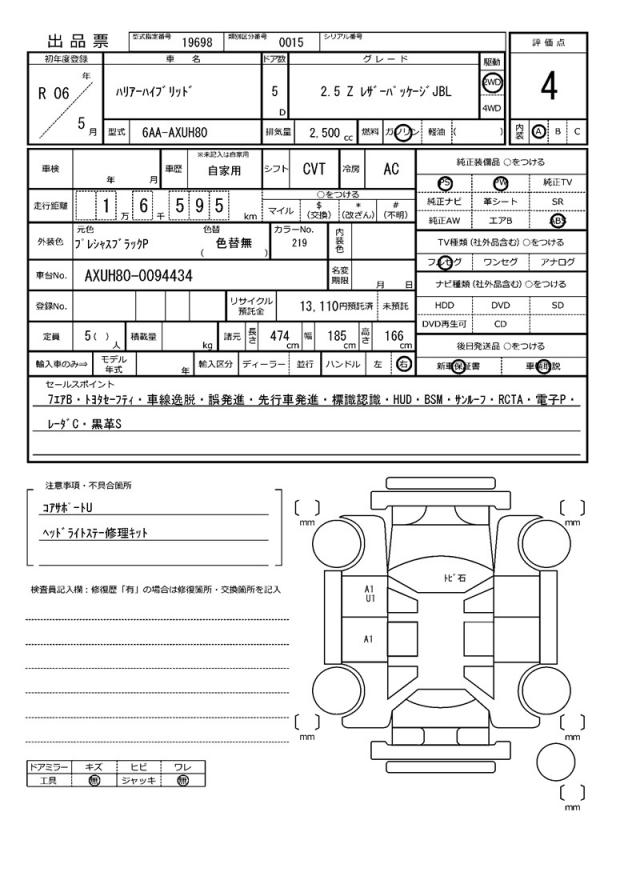 出品票 型式指定番号 19698 類別区分番号 0015 シリアル番号
評価点
4
内装 A B C
初年度登録 車名 ドア数 グレード 駆動
R 06 年 5 月
ﾊﾘｱｰﾊｲﾌﾞﾘｯﾄﾞ 5 D 2.5 Z ﾚｻﾞｰﾊﾟｯｹｰｼﾞJBL 2WD 4WD
型式 6AA-AXUH80 排気量 2,500 cc 燃料 ガソリン 軽油 ( )
車検 年 月 車歴 ※未記入は自家用 自家用 シフト CVT 冷房 AC
走行距離 1万 6千 595 km
○をつける
マイル $(交換) *(改ざん) #(不明)
外装色 元色 ﾌﾟﾚｼｬｽﾌﾞﾗｯｸP 色替 ( 色替無 ) カラーNo. 219 内装色
車台No. AXUH80-0094434 名変期限 月 日
登録No. リサイクル預託金 13,110円預託済 未預託
定員 5( )人 積載量 kg 諸元 長さ 474 cm 幅 185 cm 高さ 166 cm
輸入車のみ⇒ モデル年式 年 輸入区分 ディーラー 並行 ハンドル 左 右
純正装備品 ○をつける
PS PW 純正TV
純正ナビ 革シート SR
純正AW エアB ABS
TV種類 (社外品含む) ○をつける
フルセグ ワンセグ アナログ
ナビ種類 (社外品含む) ○をつける
HDD DVD SD
DVD再生可 CD
後日発送品 ○をつける
新車保証書 車輌取説
セールスポイント
7ｴｱB・ﾄﾖﾀｾｰﾌﾃｨ・車線逸脱・誤発進・先行車発進・標識認識・HUD・BSM・ｻﾝﾙｰﾌ・RCTA・電子P・
ﾚｰﾀﾞC・黒革S
注意事項・不具合箇所
ｺｱｻﾎﾟｰﾄU
ﾍｯﾄﾞﾗｲﾄｽﾃｰ修理キット
検査員記入欄：修復歴「有」の場合は修復箇所・交換箇所を記入
ドアミラー キズ ヒビ ワレ
工具 無 ジャッキ 無
[ ] mm
[ ] mm
ﾄﾋﾞ石
A1
U1
A1
[ ] mm
[ ] mm
[ ] mm